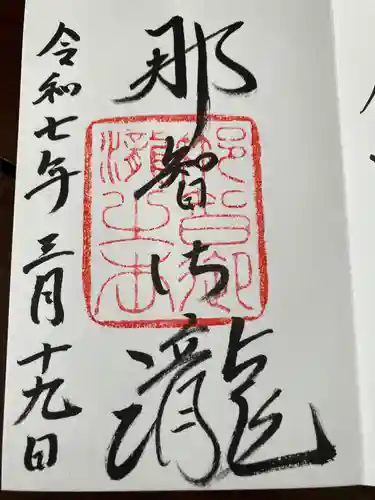 那智御瀧
令和七年三月十九日